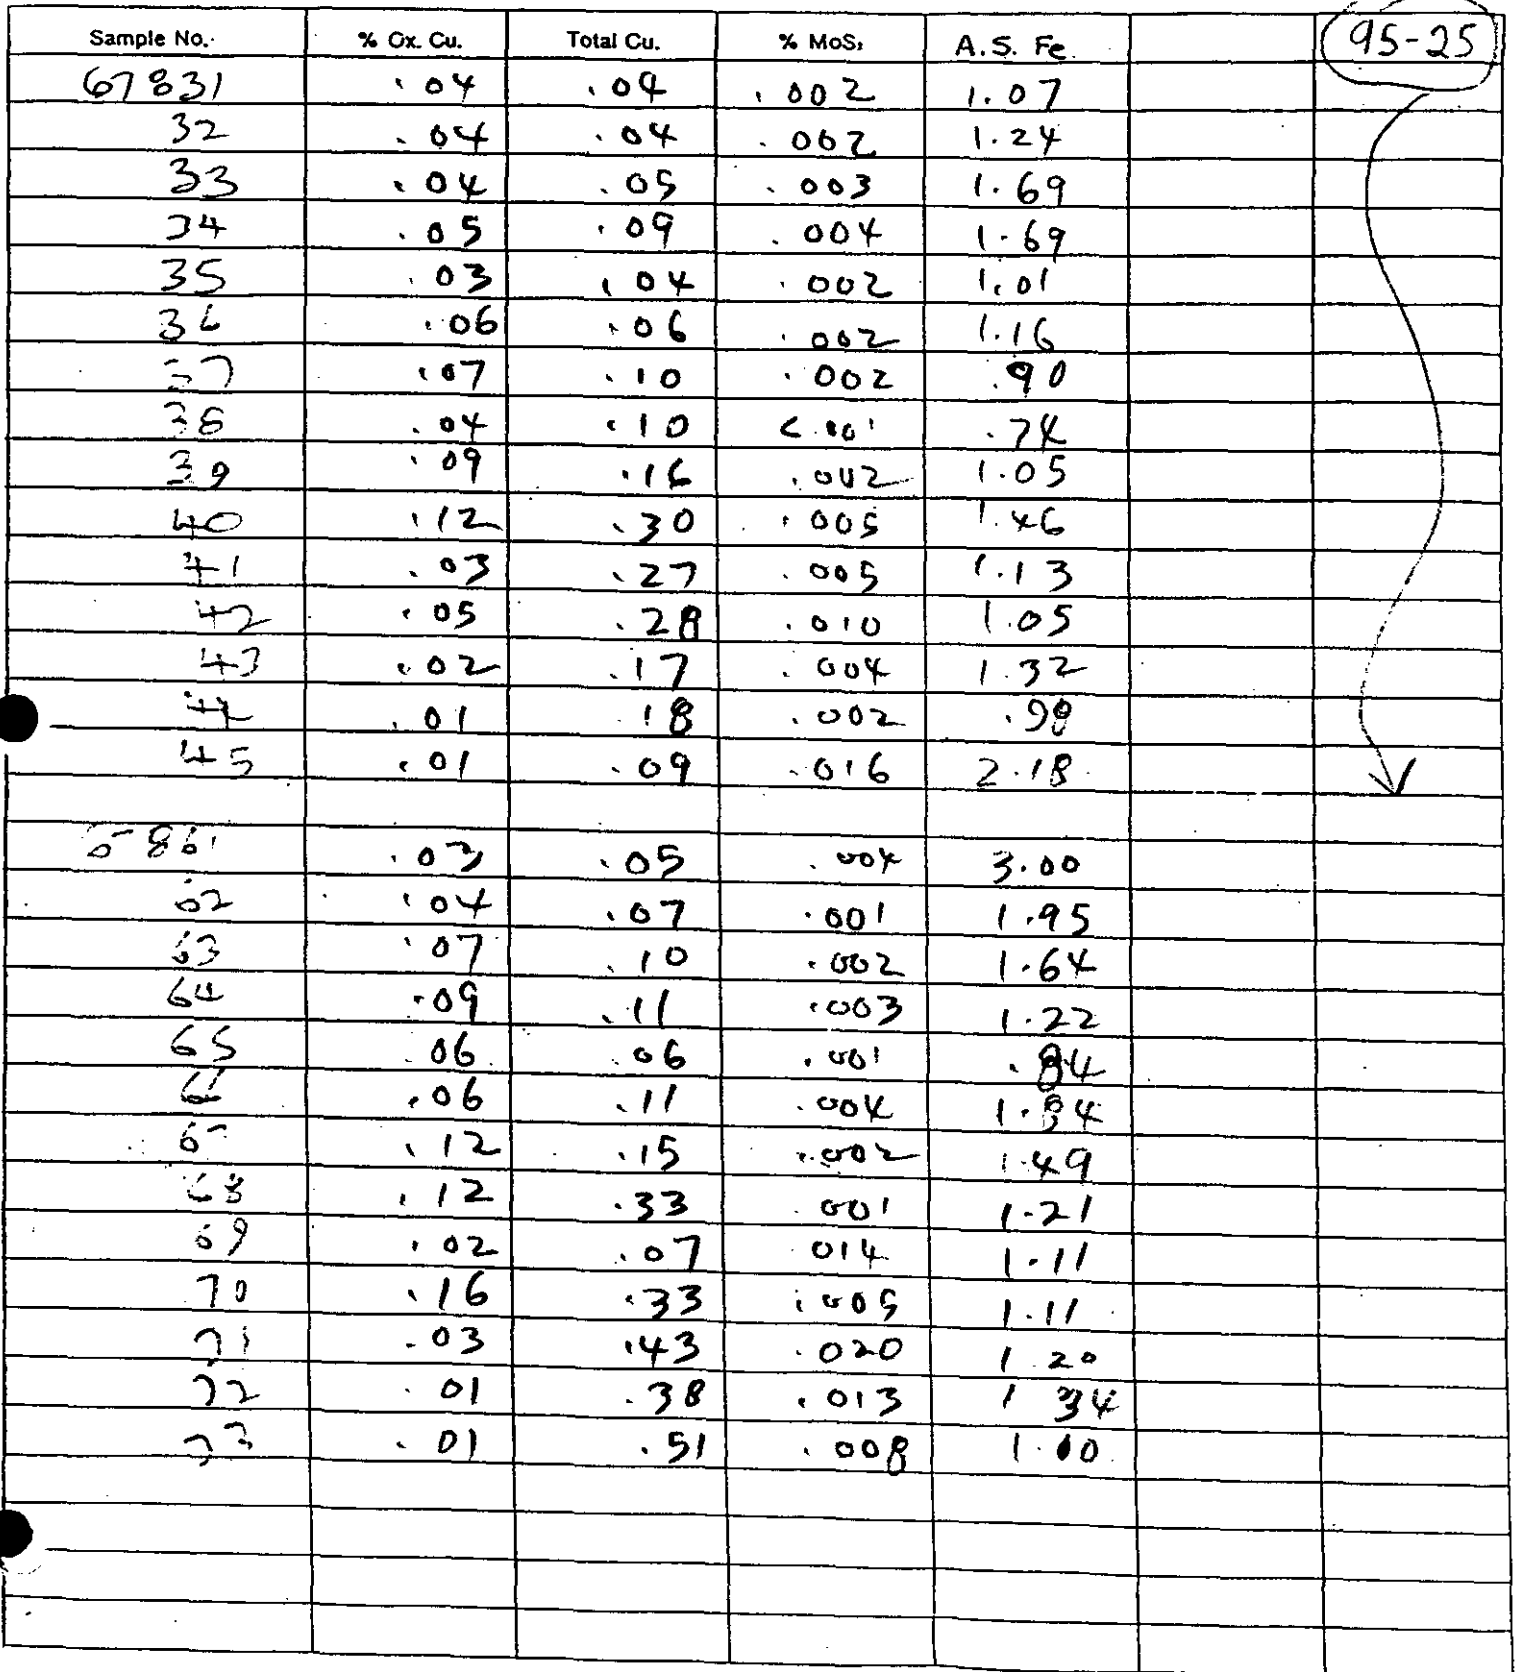 Sample No. % Ox. Cu. Total Cu. % MoS₂ A.S. Fe 95-25
67831 .04 .04 .002 1.07
32 .04 .04 .002 1.24
33 .04 .05 .003 1.69
34 .05 .09 .004 1.69
35 .03 .04 .002 1.01
36 .06 .06 .002 1.16
37 .07 .10 .002 .90
38 .04 .10 <.001 .74
39 .09 .16 .002 1.05
40 .12 .30 .005 1.46
41 .03 .27 .005 1.13
42 .05 .28 .010 1.05
43 .02 .17 .004 1.32
44 .01 .18 .002 .98
45 .01 .09 .016 2.18
861 .03 .05 .004 3.00
62 .04 .07 .001 1.95
63 .07 .10 .002 1.64
64 .09 .11 .003 1.22
65 .06 .06 .001 .84
66 .06 .11 .004 1.84
67 .12 .15 .002 1.49
68 .12 .33 .001 1.21
69 .02 .07 .014 1.11
70 .16 .33 .005 1.11
71 .03 .43 .020 1.20
72 .01 .38 .013 1.34
73 .01 .51 .008 1.00